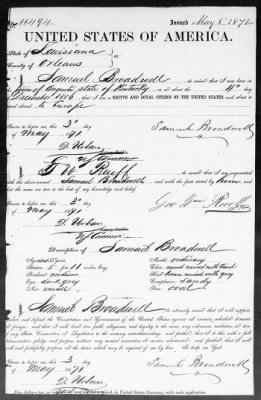 No. 11494. Issued May 8" 1871
UNITED STATES OF AMERICA.
State of Louisiana
County of Orleans
I, Samuel Broadwell, do swear that I was born in the
town of Augusta State of Kentucky, on or about the 4th day
December 1816, that I am a NATIVE AND LOYAL CITIZEN OF THE UNITED STATES, and about
to travel to Europe
Sworn to before me, this 3d day
of May 1871
Samuel Broadwell
that I am acquainted
with the above-named Samuel Broadwell, and with the facts stated by him, and
that the same are true to the best of my knowledge and belief.
Sworn to before me, this 3d day
of May 1871
Description of Samuel Broadwell
Age: 54 years
Stature: 5 feet 11 inches, Eng.
Forehead: medium
Eyes: dark grey
Nose: small
Mouth: ordinary
Chin:
Hair: brown mixed with grey
Complexion: sandy
Face: oval
I, Samuel Broadwell, do solemnly swear that I will support,
protect, and defend the Constitution and Government of the United States against all enemies, whether domestic
or foreign; and that I will bear true faith, allegiance, and loyalty to the same, any ordinance, resolution, or law
of any State, Convention, or Legislature to the contrary notwithstanding; and further, that I do this with a full
determination, pledge, and purpose, without any mental reservation or evasion whatsoever; and further, that I will
well and faithfully perform all the duties which may be required of me by law. So help me God.
Sworn to before me, this 3 day
of May 1871
Samuel Broadwell